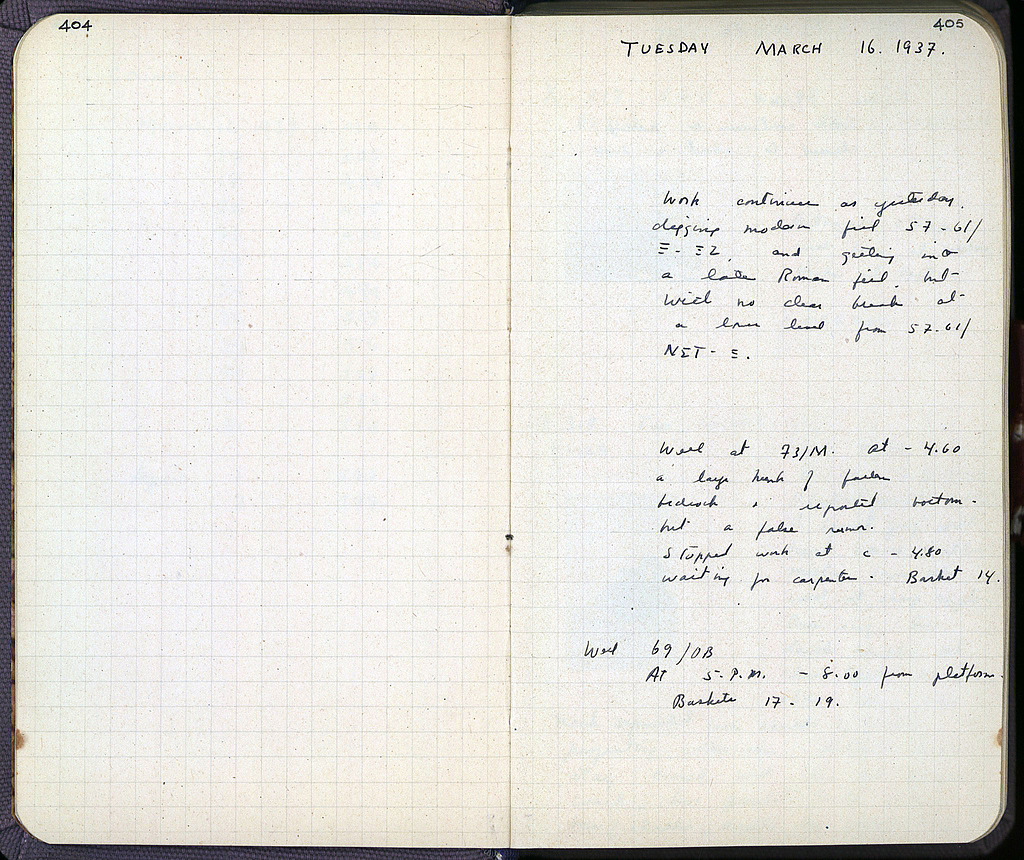 404
405
TUESDAY MARCH 16. 1937.
Work continues as yesterday.
digging modern fill 57-61/
Ξ-ΞZ, and getting into
a late Roman fill, but
with no clear break at
a lower level from 57-61/
NΣT-Ξ.
Well at 73/M. At -4.60
a large hunk of fallen
bedrock is reported bottom.
but a false rumor.
Stopped work at c -4.80
waiting for carpenter. Basket 14.
Well 69/OB
At 5 P.M. -8.00 from platform.
Baskets 17-19.